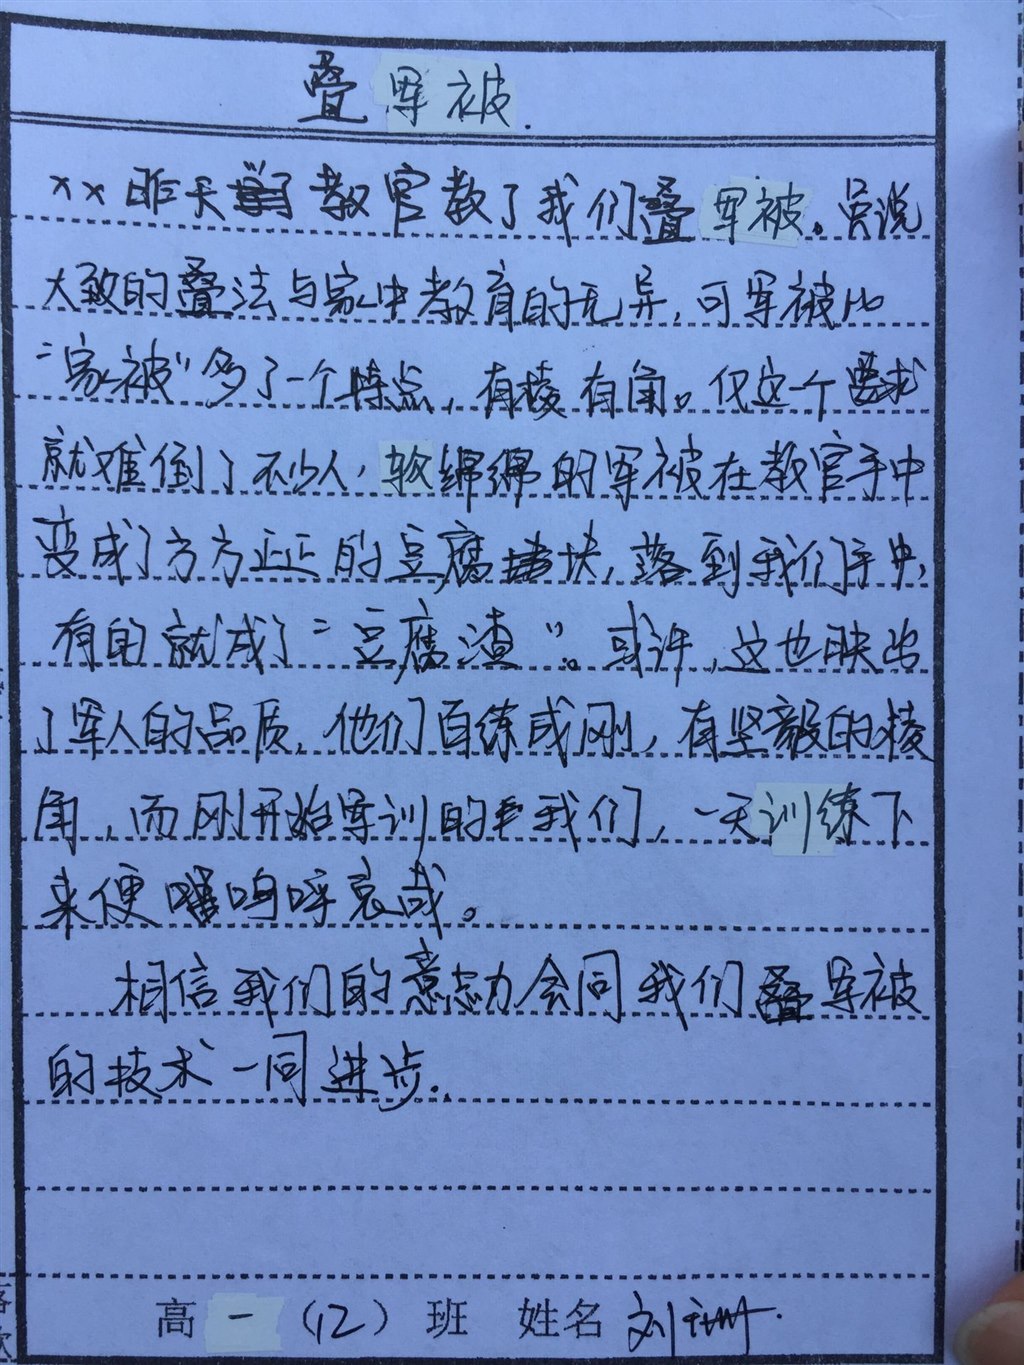 叠军被.
××昨天教官教了我们叠军被。虽说
大致的叠法与家中教育的无异,可军被比
“家被”多了一个特点,有棱有角。仅这一个要求
就难倒了不少人,软绵绵的军被在教官手中
变成了方方正正的豆腐块,落到我们手中,
有的就成了“豆腐渣”。或许,这也映出
了军人的品质,他们百练成刚,有坚毅的棱
角,而刚开始军训的我们,一天训练下
来便嚷呜呼哀哉。
相信我们的意志力会同我们叠军被
的技术一同进步.
高一(12)班 姓名 刘